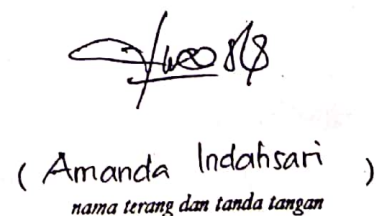 ( Amanda Indahsari )
nama terang dan tanda tangan